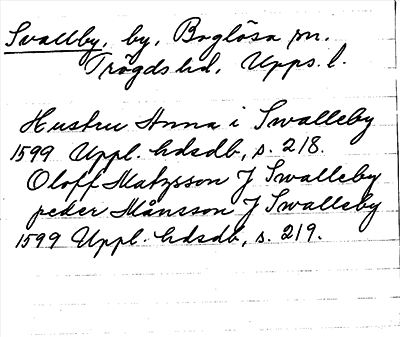 Svallby, by, Boglösa sn.
Trögds hd, Upps. l.
Hustru Anna i Swalleby
1599 Uppl. hdsdb, s. 218.
Oloff Matzsson J Swalleby
peder Månsson J Swalleby
1599 Uppl. hdsdb, s. 219.